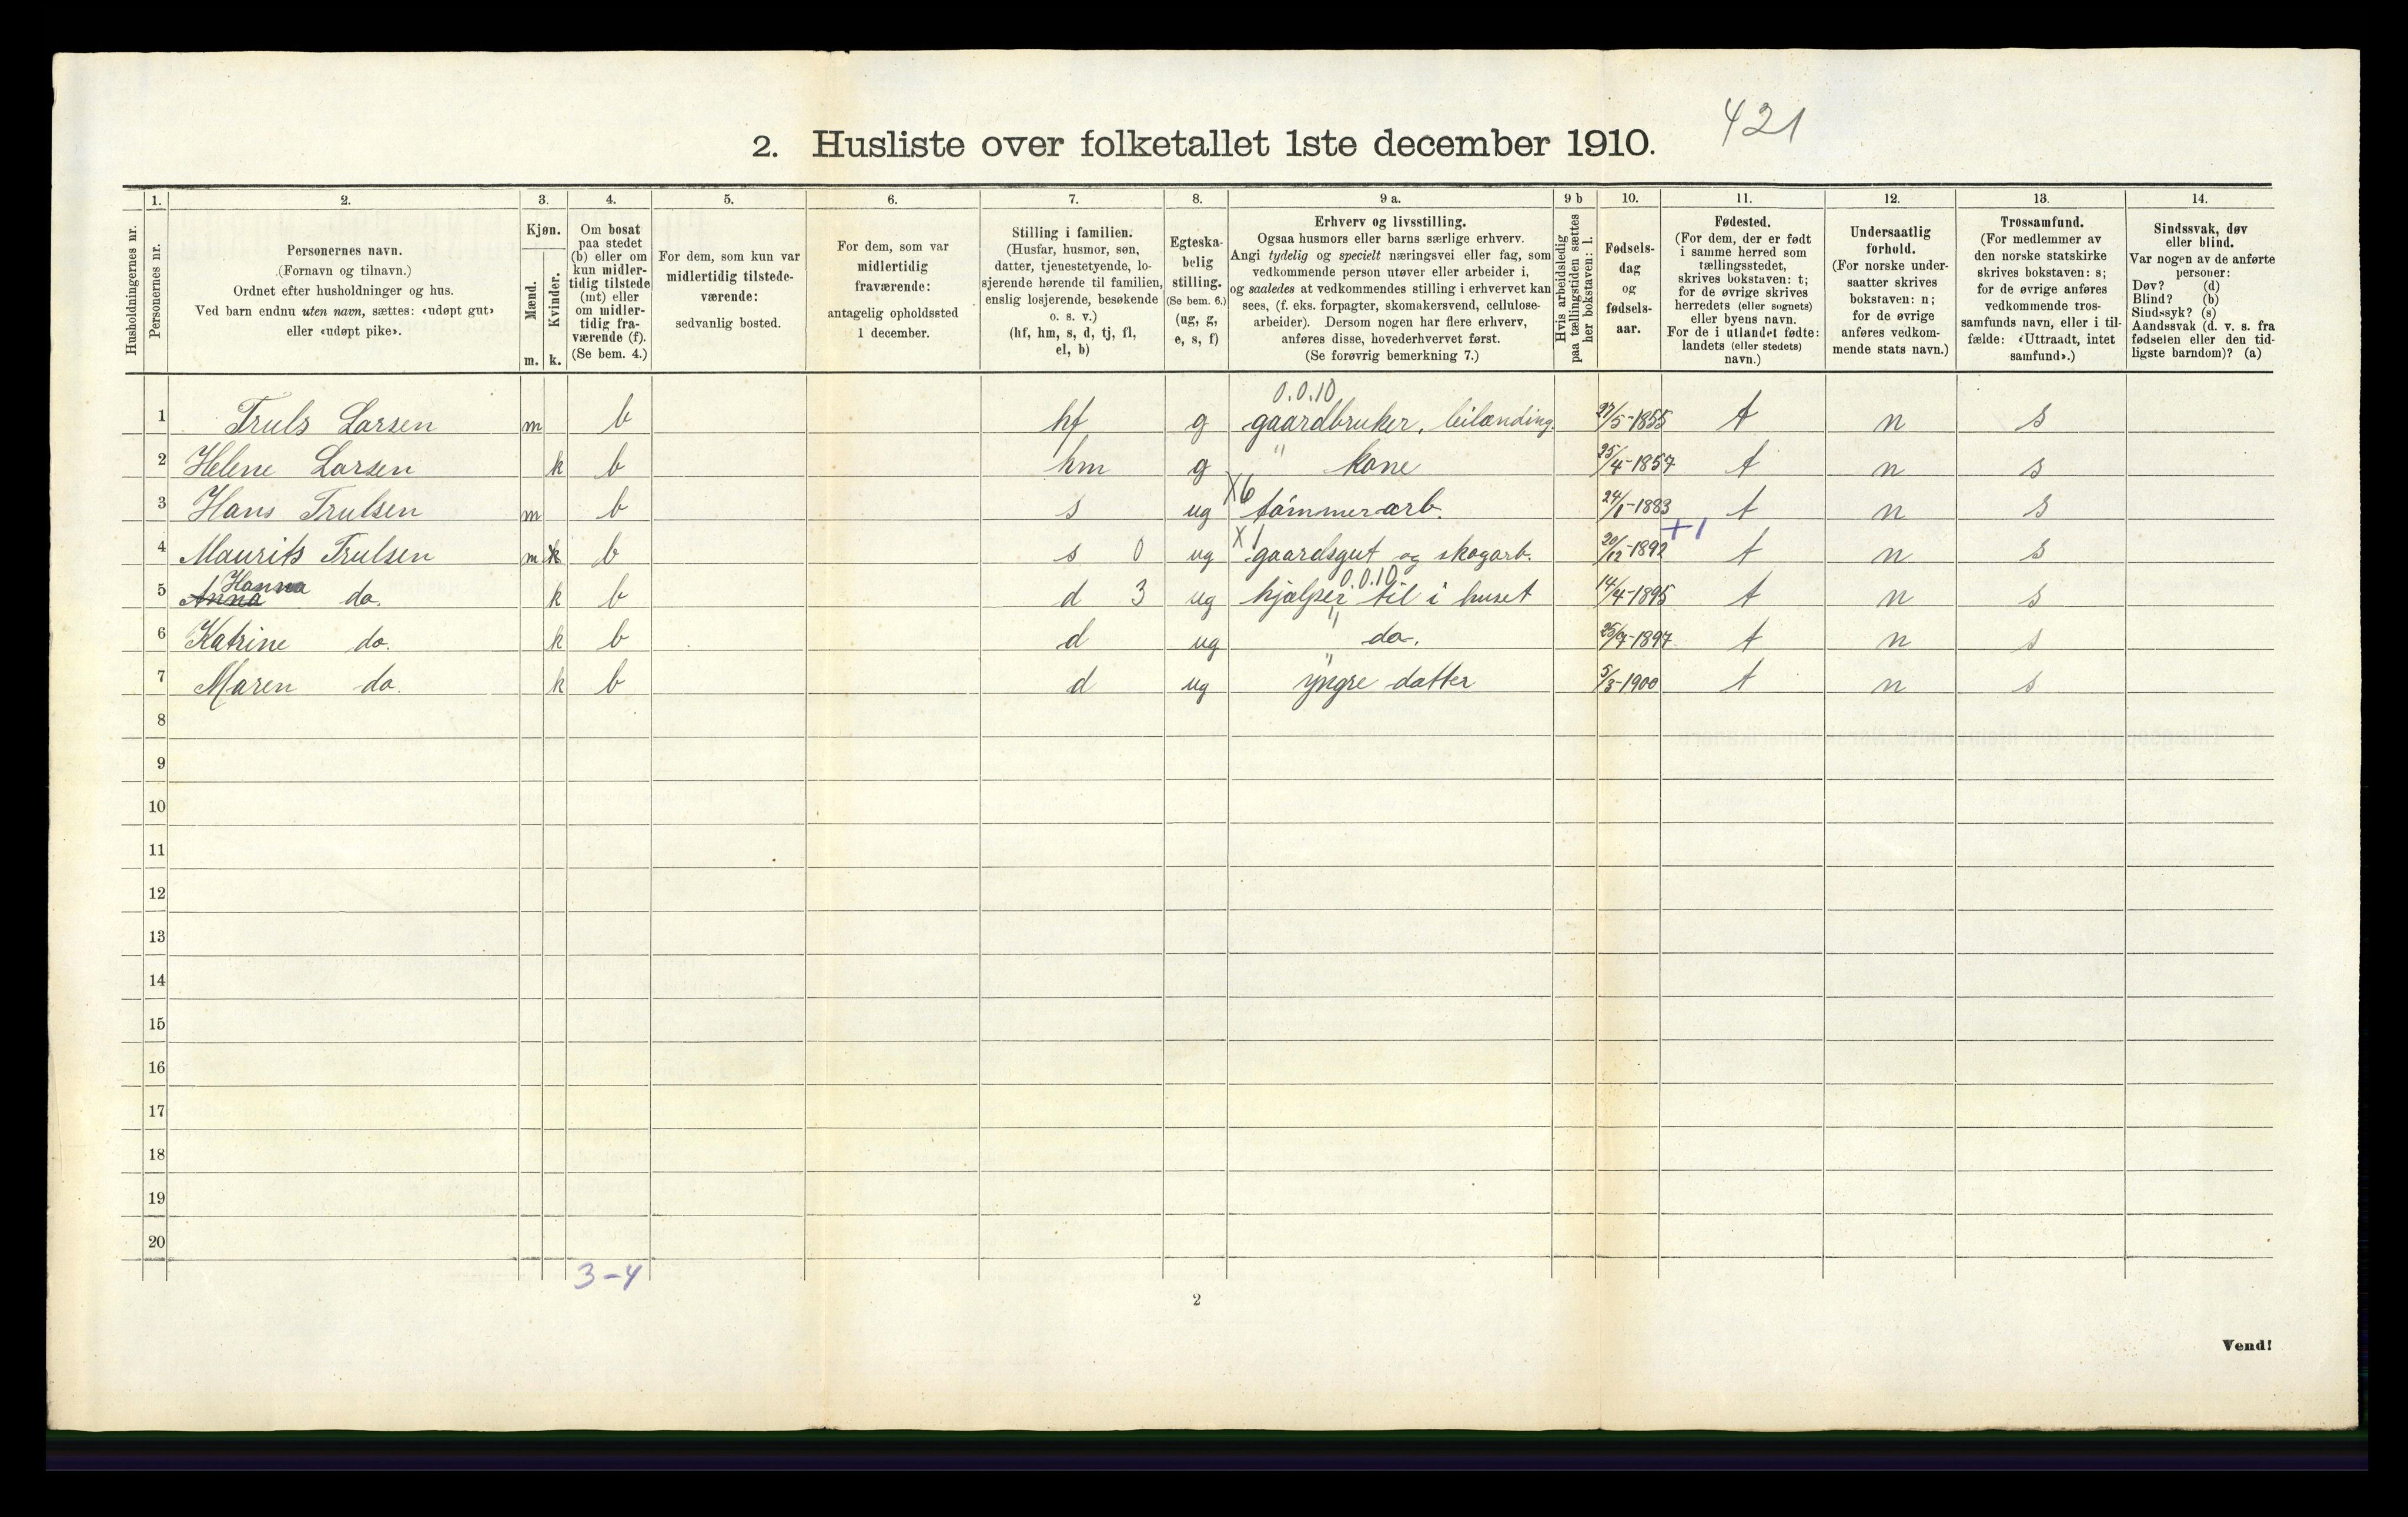 421
2. Husliste over folketallet 1ste december 1910.
Husholdningernes nr.
1.
Personernes nr.
2.
Personernes navn.
(Fornavn og tilnavn.)
Ordnet efter husholdninger og hus.
Ved barn endnu uten navn, sættes: «udøpt gut»
eller «udøpt pike».
3.
Kjøn.
Mænd.
Kvinder.
m. k.
4.
Om bosat
paa stedet
(b) eller om
kun midler-
tidig tilstede
(mt) eller
om midler-
tidig fra-
værende (f).
(Se bem. 4.)
5.
For dem, som kun var
midlertidig tilstede-
værende:
sedvanlig bosted.
6.
For dem, som var
midlertidig
fraværende:
antagelig opholdssted
1 december.
7.
Stilling i familien.
(Husfar, husmor, søn,
datter, tjenestetyende, lo-
sjerende hørende til familien,
enslig losjerende, besøkende
o. s. v.)
(hf, hm, s, d, tj, fl,
el, b)
8.
Egteska-
belig
stilling.
(Se bem. 6.)
(ug, g,
e, s, f)
9 a.
Erhverv og livsstilling.
Ogsaa husmors eller barns særlige erhverv.
Angi tydelig og specielt næringsvei eller fag, som
vedkommende person utøver eller arbeider i,
og saaledes at vedkommendes stilling i erhvervet kan
sees, (f. eks. forpagter, skomakersvend, cellulose-
arbeider). Dersom nogen har flere erhverv,
anføres disse, hovederhvervet først.
(Se forøvrig bemerkning 7.)
9 b
Hvis arbeidsledig
paa tællingstiden sættes
her bokstaven: l.
10.
Fødsels-
dag
og
fødsels-
aar.
11.
Fødested.
(For dem, der er født
i samme herred som
tællingsstedet,
skrives bokstaven: t;
for de øvrige skrives
herredets (eller sognets)
eller byens navn.
For de i utlandet fødte:
landets (eller stedets)
navn.)
12.
Undersaatlig
forhold.
(For norske under-
saatter skrives
bokstaven: n;
for de øvrige
anføres vedkom-
mende stats navn.)
13.
Trossamfund.
(For medlemmer av
den norske statskirke
skrives bokstaven: s;
for de øvrige anføres
vedkommende tros-
samfunds navn, eller i til-
fælde: «Uttraadt, intet
samfund».)
14.
Sindssvak, døv
eller blind.
Var nogen av de anførte
personer:
Døv? (d)
Blind? (b)
Sindssyk? (s)
Aandssvak (d. v. s. fra
fødselen eller den tid-
ligste barndom)? (a)
0.0.10
1 Truls Larsen m b hf g gaardbruker, leilænding. 27/5-1855 t n s
2 Helene Larsen k b hm g " kone 25/4-1857 t n s
X6
3 Hans Trulsen m b s ug tømmerarb. 24/1-1883 t n s
X1 +1
4 Maurits Trulsen m k b s 0 ug gaardsgut og skogarb. 20/12-1892 t n s
Hanna 0.0.10
5 Anna do. k b d 3 ug hjælper til i huset 14/4-1895 t n s
6 Katrine do. k b d ug " do. 25/7-1897 t n s
7 Maren do. k b d ug " yngre datter 5/3-1900 t n s
8
9
10
11
12
13
14
15
16
17
18
19
20
3-4
2
Vend!